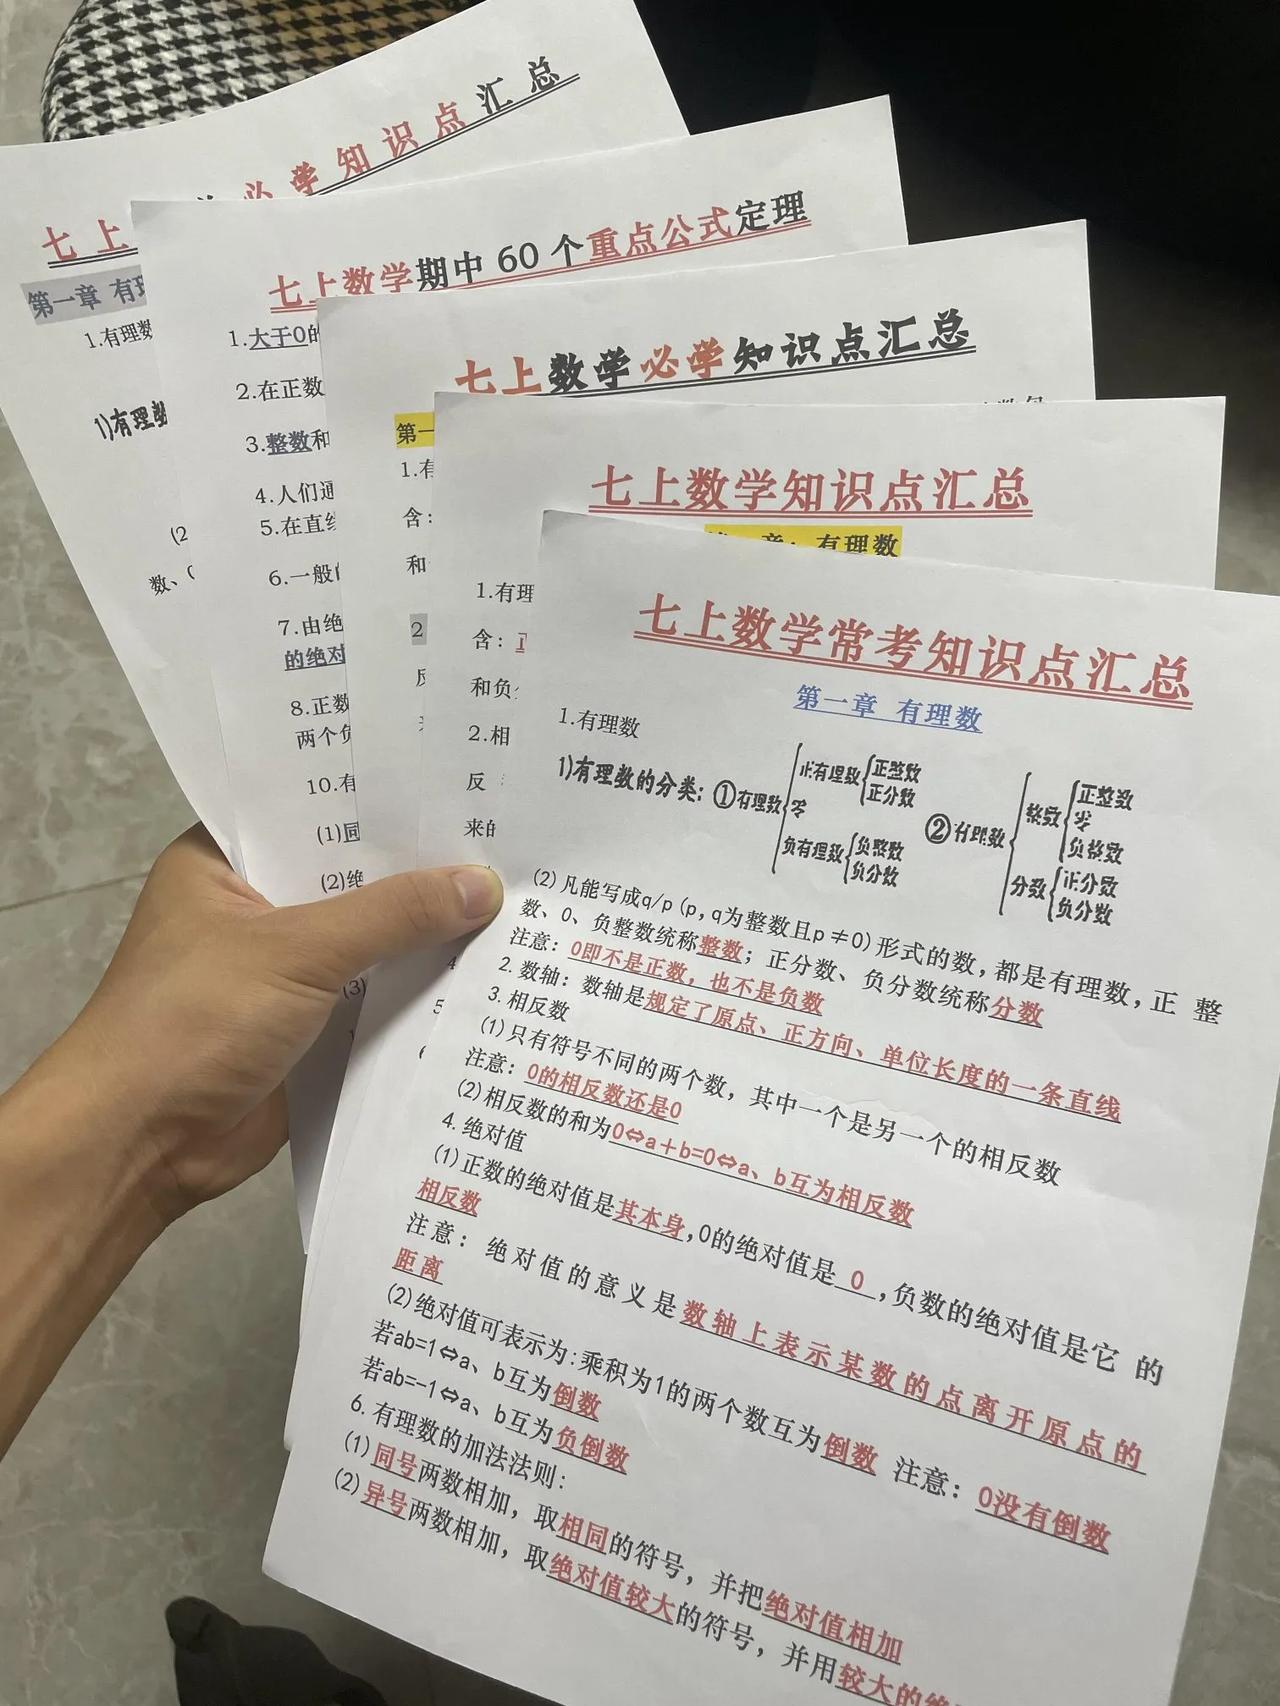 必学知识点汇总
七上
第一章 有理
1.有理数
1)有理数
(2
数、0
七上数学期中60个重点公式定理
1.大于0的
2.在正数
3.整数和
4.人们通
5.在直线
6.一般的
7.由绝
的绝对
8.正数
两个负
10.有
(1)同
(2)绝
(3)
七上数学必学知识点汇总
第一
1.有
含:
和
2
反
七上数学知识点汇总
章:有理数
1.有理
含:正
和负分
2.相
反
来的
4
5
6
七上数学常考知识点汇总
第一章 有理数
1.有理数
1)有理数的分类:①有理数
正有理数
正整数
正分数
零
负有理数
负整数
负分数
②有理数
整数
正整数
零
负整数
分数
正分数
负分数
(2)凡能写成q/p(p,q为整数且p≠0)形式的数,都是有理数,正 整
数、0、负整数统称整数;正分数、负分数统称分数
注意:0即不是正数,也不是负数
2.数轴:数轴是规定了原点、正方向、单位长度的一条直线
3.相反数
(1)只有符号不同的两个数,其中一个是另一个的相反数
注意:0的相反数还是0
(2)相反数的和为0⇔a+b=0⇔a、b互为相反数
4.绝对值
(1)正数的绝对值是其本身,0的绝对值是 0 ,负数的绝对值是它 的
相反数
注意:绝对值的意义是数轴上表示某数的点离开原点的
距离
(2)绝对值可表示为:乘积为1的两个数互为倒数 注意:0没有倒数
若ab=1⇔a、b互为倒数
若ab=-1⇔a、b互为负倒数
6.有理数的加法法则:
(1)同号两数相加,取相同的符号,并把绝对值相加
(2)异号两数相加,取绝对值较大的符号,并用较大的绝